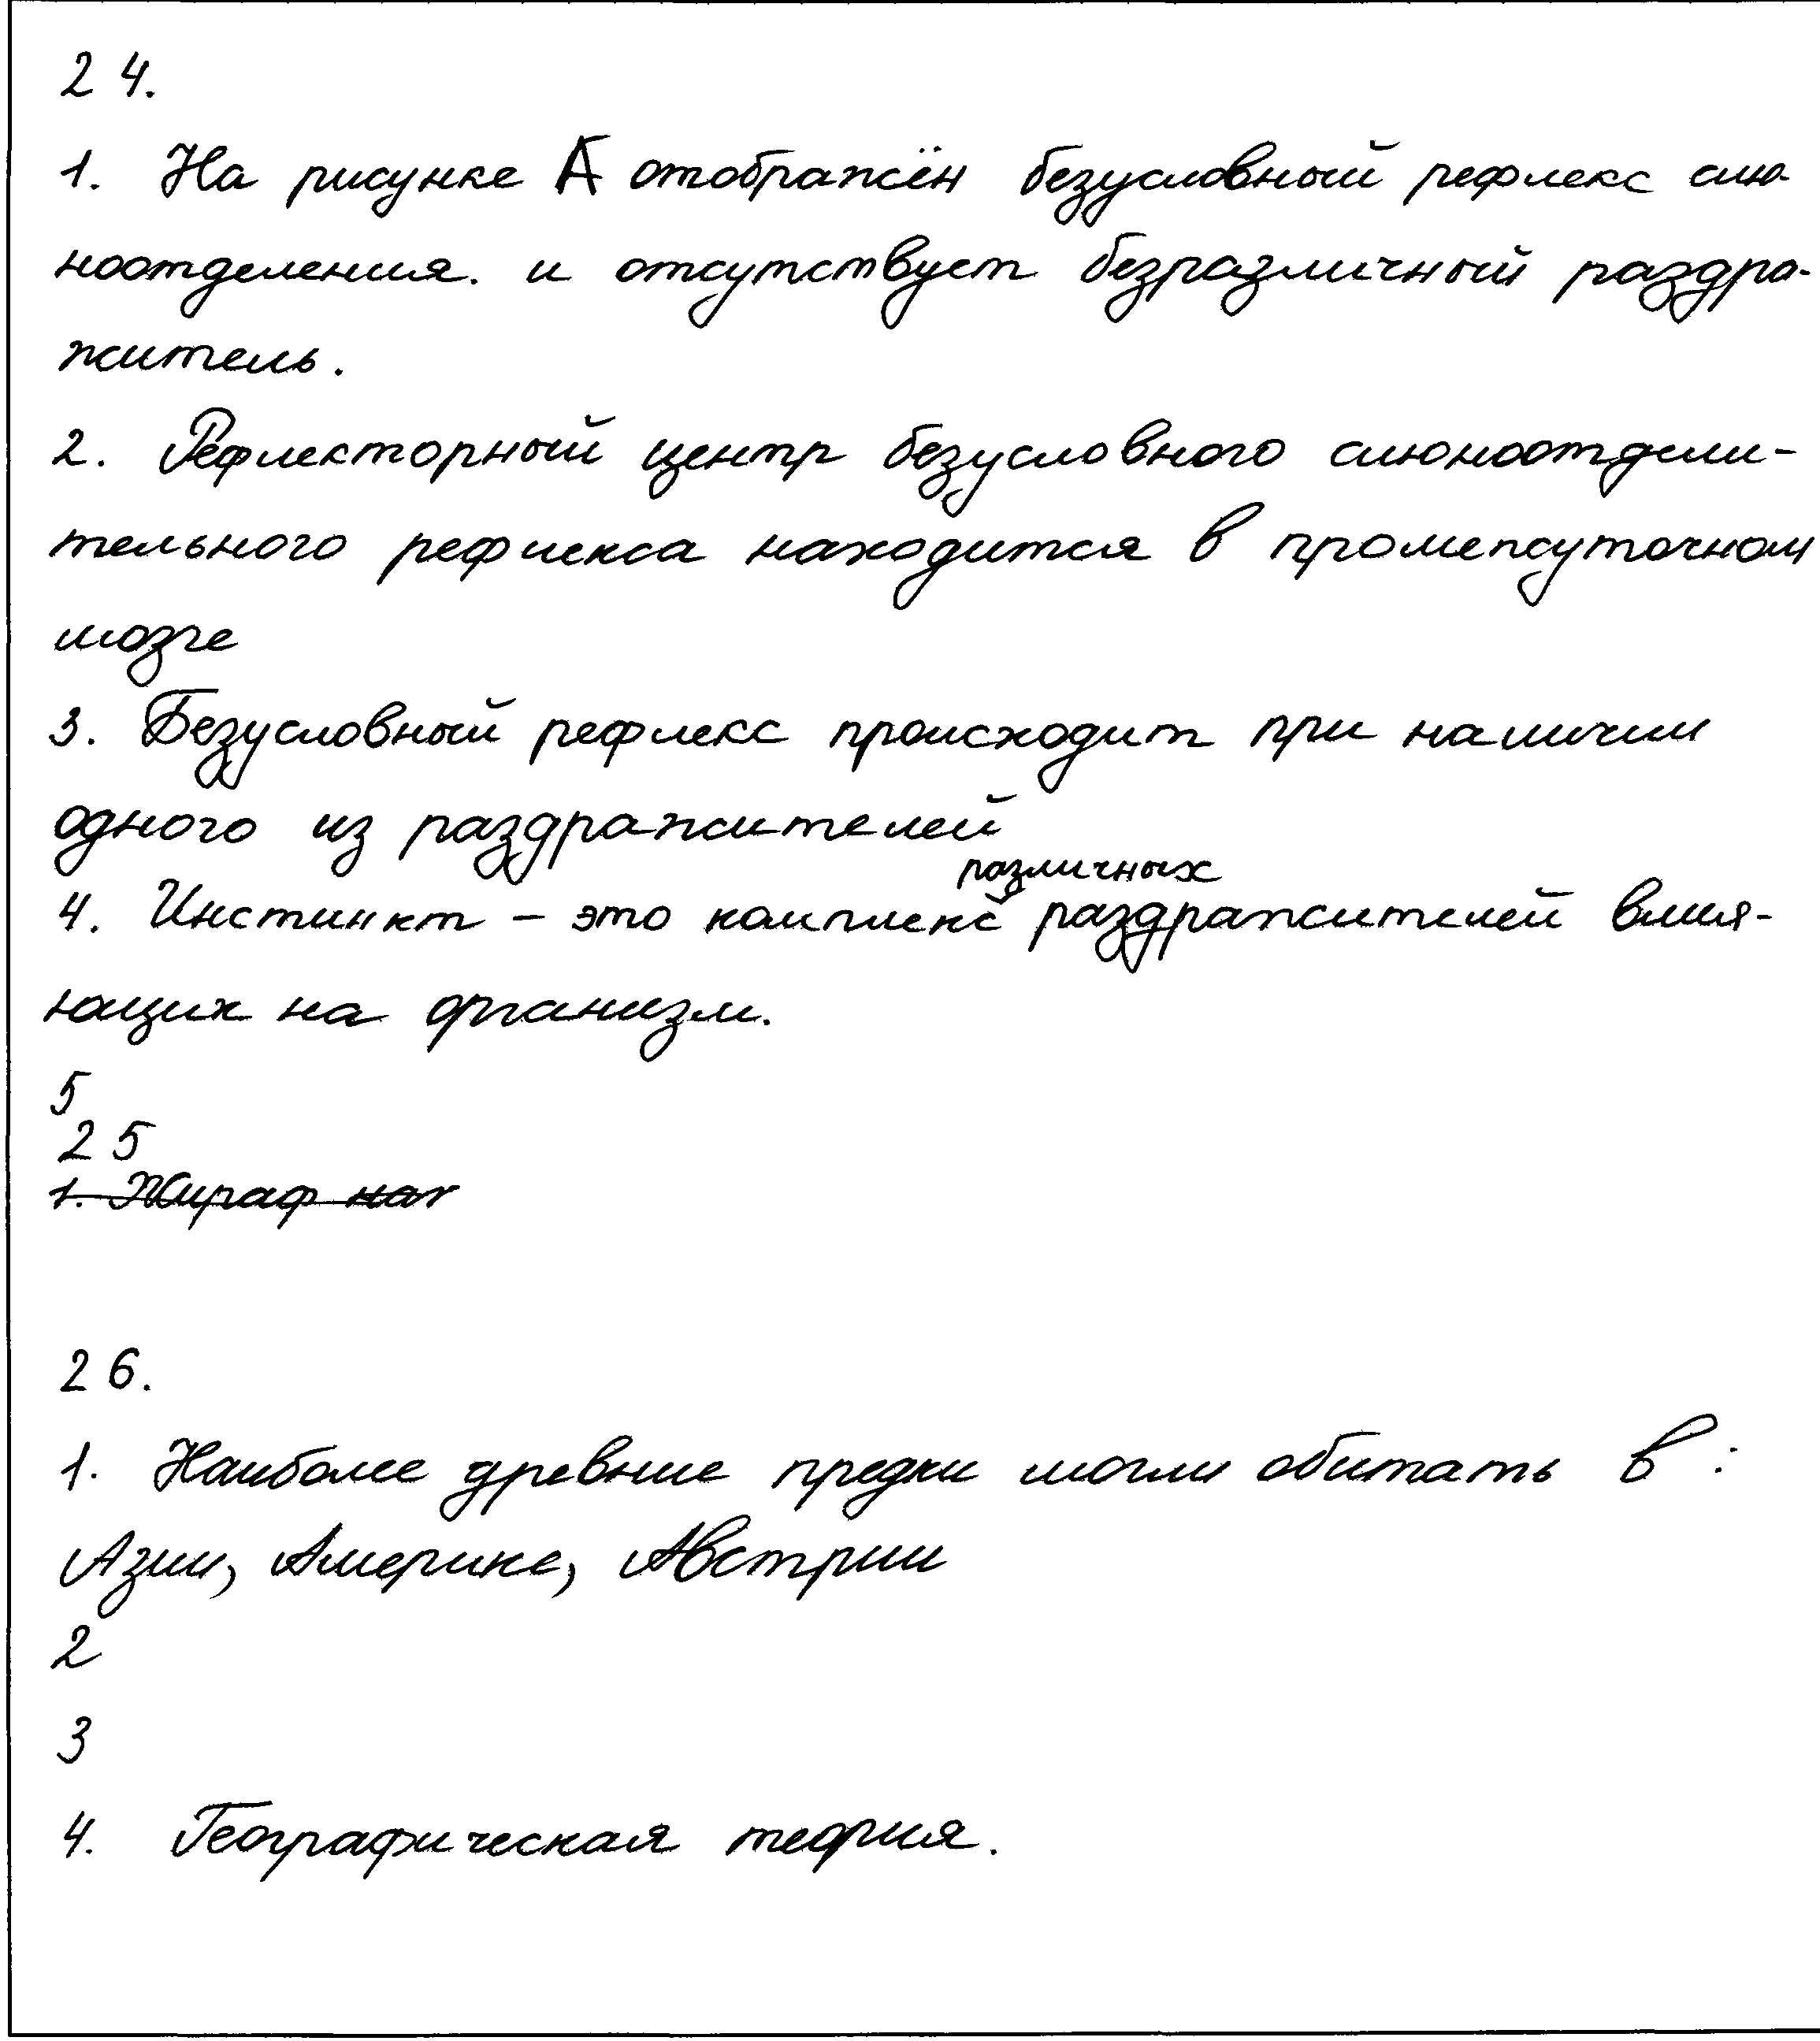 24.
1. На рисунке А отображён безусловный рефлекс слю-
ноотделения. и отсутствует безразличный раздра-
житель.
2. Рефлекторный центр безусловного слюноотдели-
тельного рефлекса находится в промепсуточном
мозге
3. Безусловный рефлекс происходит при наличии
одного из раздражителей
различных
4. Инстинкт – это комплекс раздражителей влия-
ющих на организм.
5
25
1. Жираф наг
26.
1. Наиболее древние предки могли обитать в :
Азии, Америке, Австрии
2
3
4. Географическая теория.